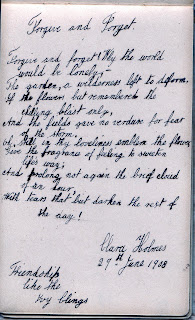 Forgive and Forget
Forgive and forget! Why the world
would be lonely,
The garden, a wilderness left to deform.
If the flowers but remembered the
chilling blast only,
And the fields gave no verdure for fear
of the storm.
Oh, still in thy loveliness emblem the flower
Give the fragrance of feeling to sweeten
life's way;
And prolong not again the brief cloud
of an hour,
With tears that but darken the rest of
the day!
Clara Holmes
29th June 1908
Friendship
like the
Ivy Clings